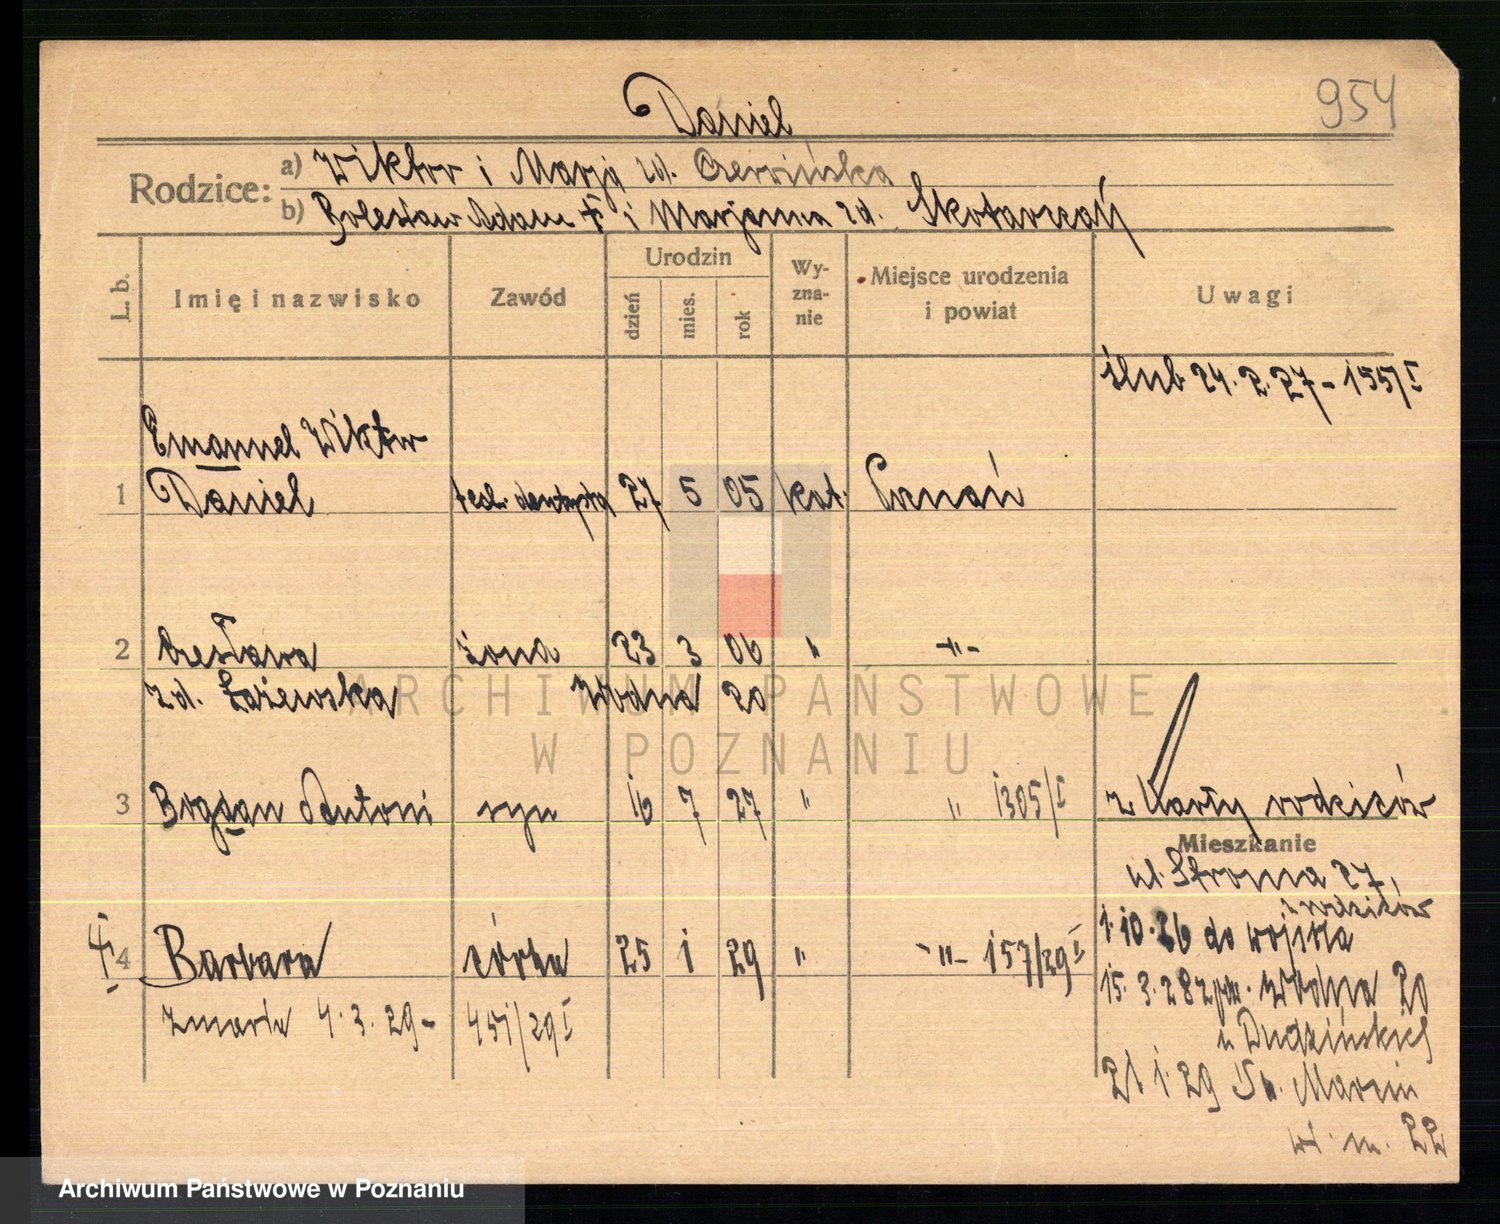 954
Daniel
Rodzice:
a) Wiktor i Marja zd. Czerwińska
b) Bolesław Adam † i Marjanna zd. Skotarczań
L. b.
Imię i nazwisko
Zawód
Urodzin
dzień
mies.
rok
Wy-
zna-
nie
Miejsce urodzenia
i powiat
Uwagi
ślub 24. 2. 27 - 155/I
Emanuel Wiktor
1 Daniel tech. dentysta 27 5 05 kat. Poznań
2 Czesława żona 23 3 06 " -"-
zd. Łażewska Wodna 20
3 Bogdan Antoni syn 16 7 27 " " 1305/I
z Karty rodziców
Mieszkanie
ul. Stroma 27,
rodziców
1. 10. 26 do wojska
4 Barbara córka 25 1 29 " -"- 157/29 I
15. 3. 28 Wodna 20
zmarła 4. 3. 29 - 451/29 I
u Dudzińskich
21 1 29 Św. Marcin
m. 22
ARCHIWUM PAŃSTWOWE
W POZNANIU
Archiwum Państwowe w Poznaniu